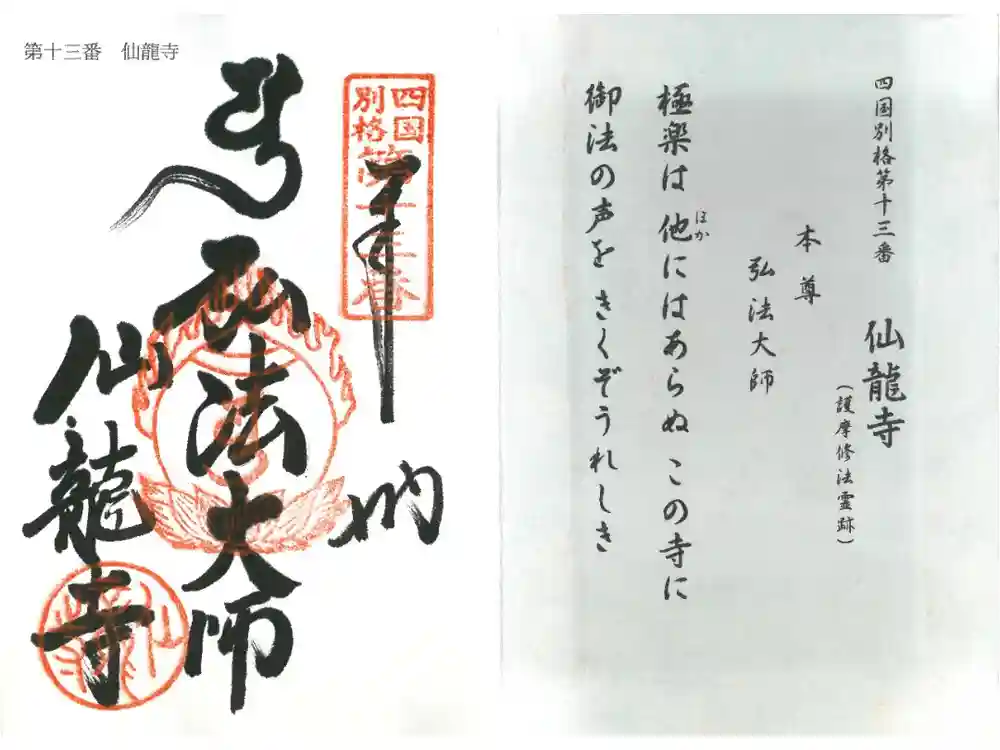 第十三番　仙龍寺
四国
別格
第十三番
奉
納
弘法大師
仙龍寺
四国別格第十三番
仙龍寺
（護摩修法霊跡）
本尊
弘法大師
極楽は他にはあらぬこの寺に
ほか
御法の声をきくぞうれしき